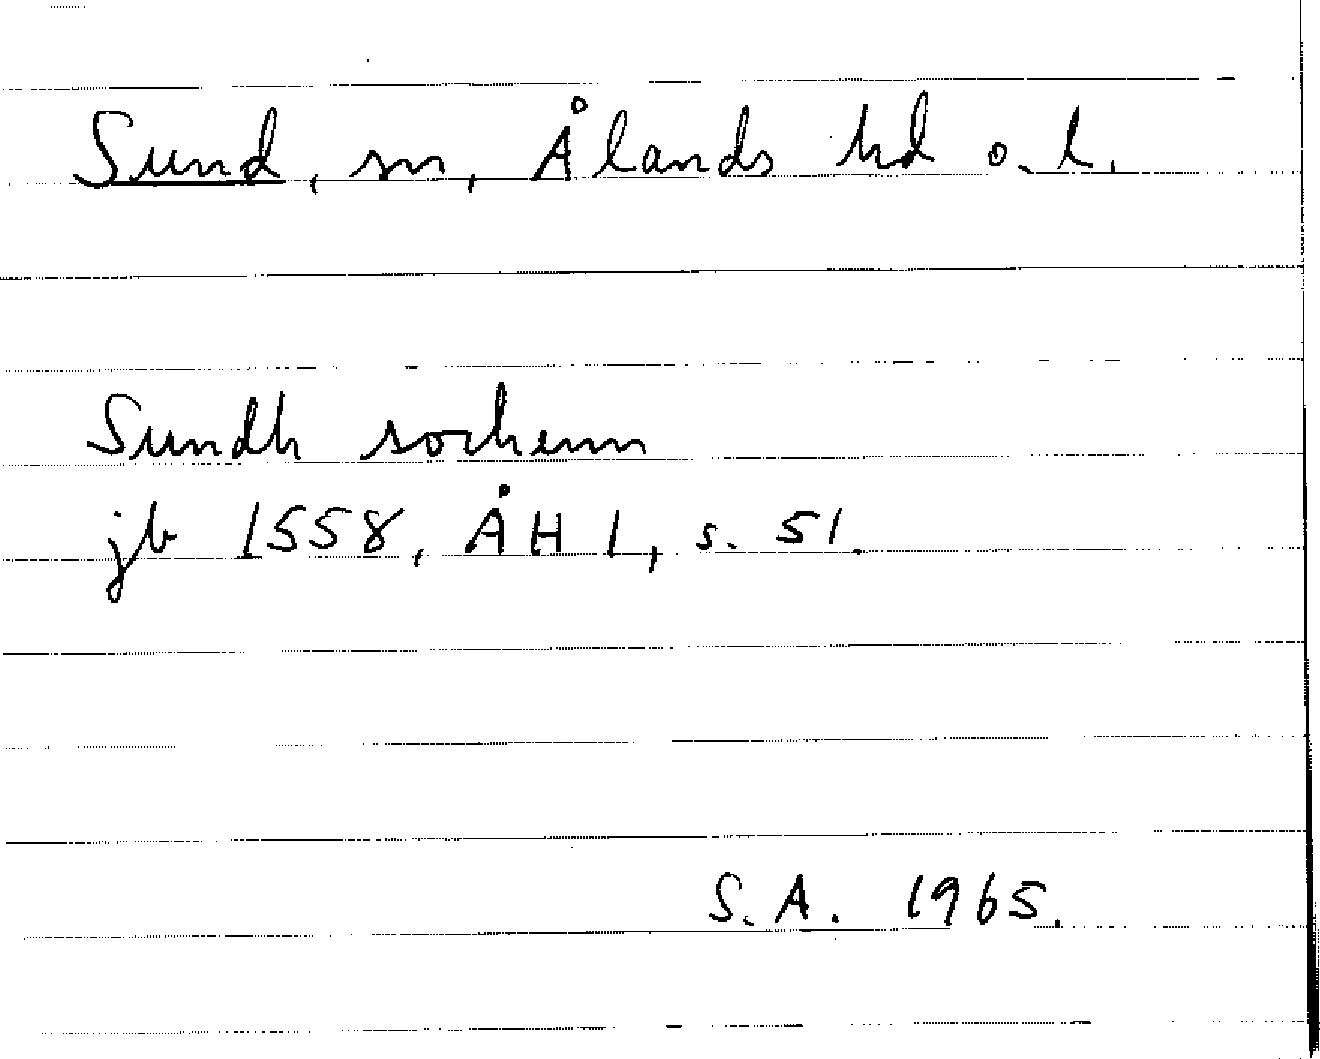 Sund, sn, Ålands hd o. l.
Sundh sochenn
jb 1558, ÅH 1, s. 51.
S.A. 1965.